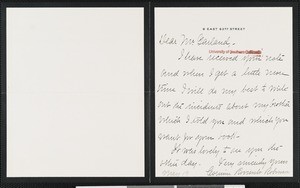 8 EAST 62ND STREET
Dear Mr. Garland.
University of Southern California
I have received your note
and when I get a little more
time I will do my best to write
out the incidents about my brother
which I told you and which you
want for your book.
It was lovely to see you the
other day. Very sincerely yours